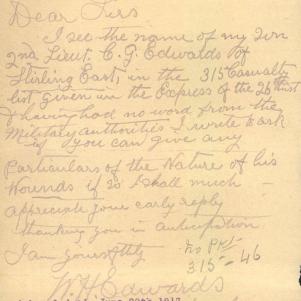 Dear Sirs
I see the name of my Son
2nd Lieut. C. G. Edwards of
Stirling East, in the 315 Casualty
list given in the Express of the 26 Inst
& having had no word from the
Military authorities I write to ask
if you can give any
particulars of the Nature of his
Wounds if so I shall much
appreciate your early reply
thanking you in anticipation
I am yours ffly
315 - 46
W H Edwards